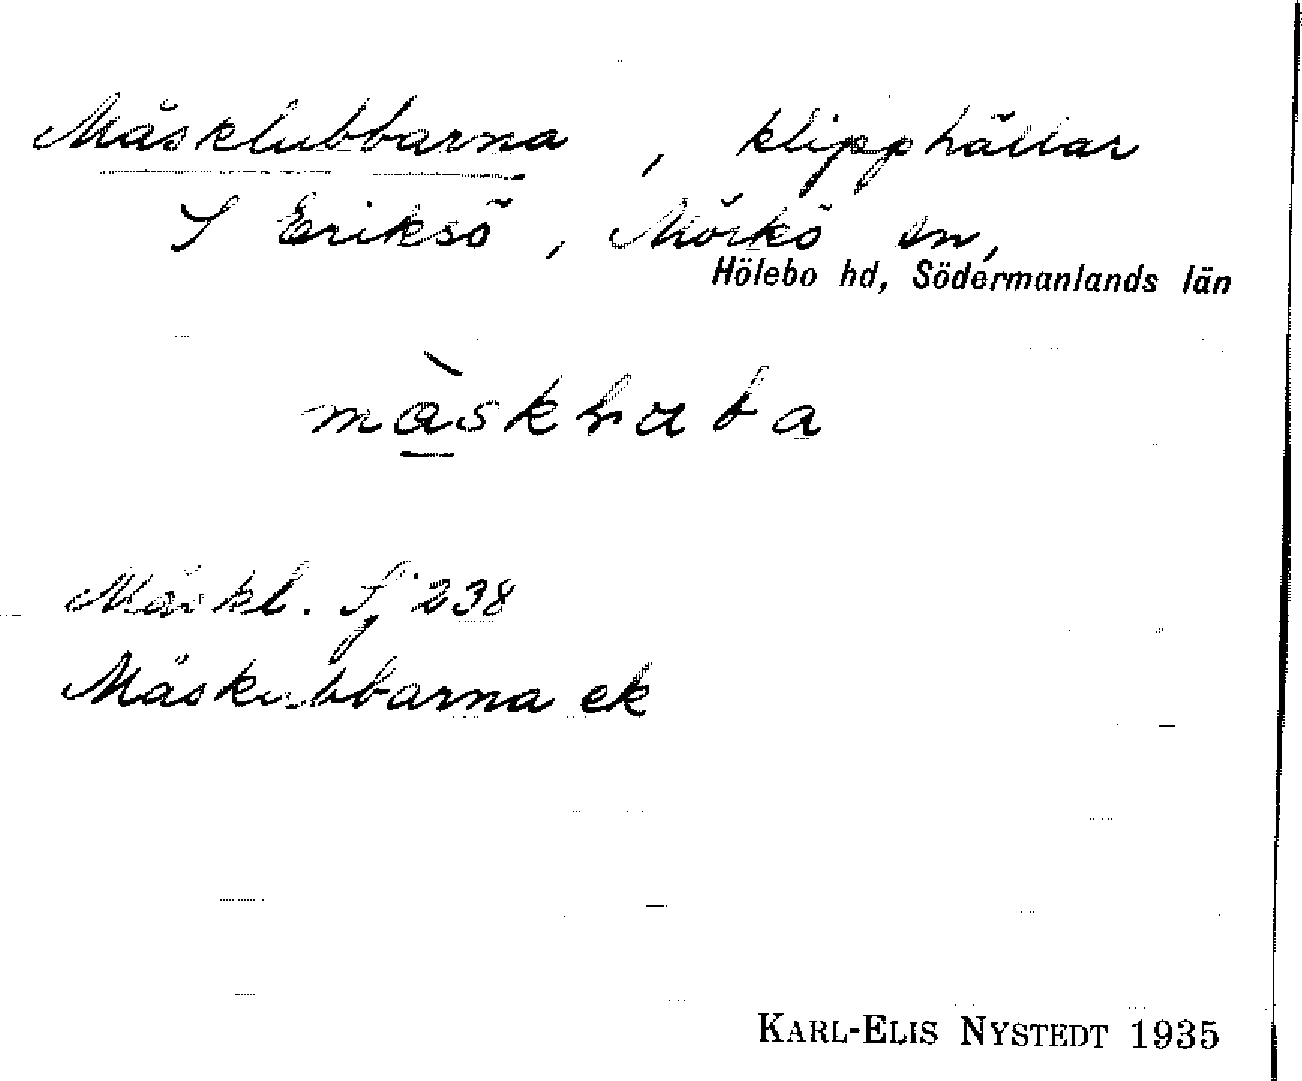 Måsklubbarna, klipphällar
S Eriksö, Mörkö sn,
Hölebo hd, Södermanlands län
Måskl. Sj 238
Måskubbarna ek
KARL-ELIS NYSTEDT 1935